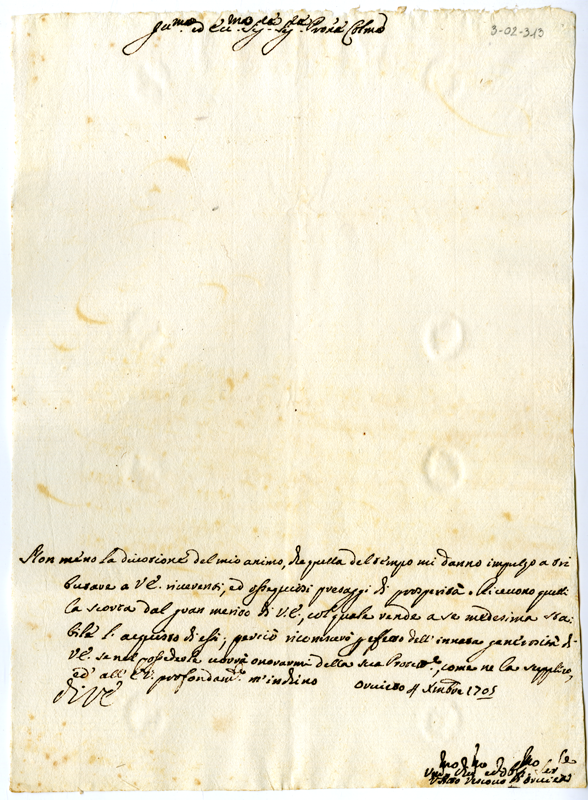 Ill.mo ed Ecc.mo Sig. Sig. Pron Colmo
3-02-313
Non meno la divotione del mio animo, che quella del tempo mi danno impulso a tri
butare a V.E. riverenti, ed ossequiosi presaggi di prosperità. Ricevono questi
la scorta dal gran merito di V.E., col quale rende a se medesima sta-
bile l'acquisto di essi; perciò riconoscerò effetto dell'innata generosità di
V.E. se nel possederle vorrà onorarmi della sua Protett.e, come ne la supplico,
ed all' E.V. profondam.te m'inchino Orvieto 4 Xmbre 1705
di V.E.
Um.mo Dev.mo ed Obb.mo Ser.re
Vescovo di Orvieto